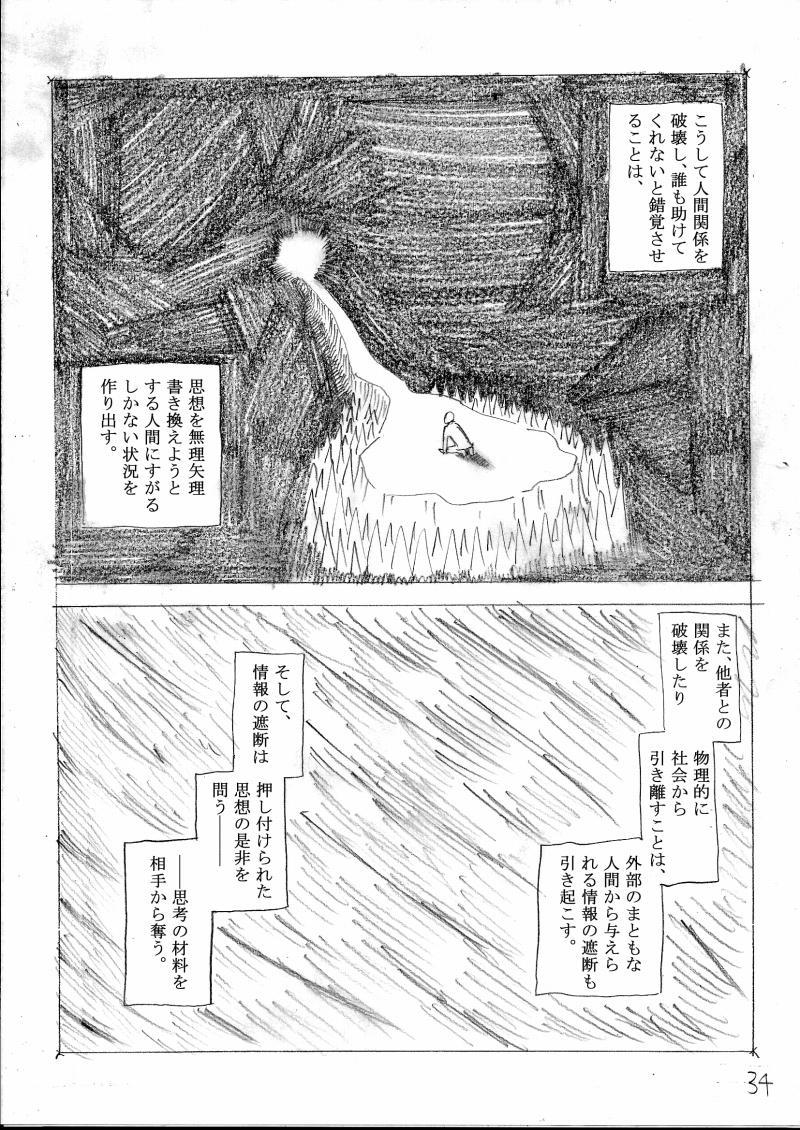 こうして人間関係を
破壊し、誰も助けて
くれないと錯覚させ
ることは、
思想を無理矢理
書き換えようと
する人間にすがる
しかない状況を
作り出す。
また、他者との
関係を
破壊したり
物理的に
社会から
引き離すことは、
外部のまともな
人間から与えら
れる情報の遮断も
引き起こす。
そして、
情報の遮断は
押し付けられた
思想の是非を
問う――
――思考の材料を
相手から奪う。
34